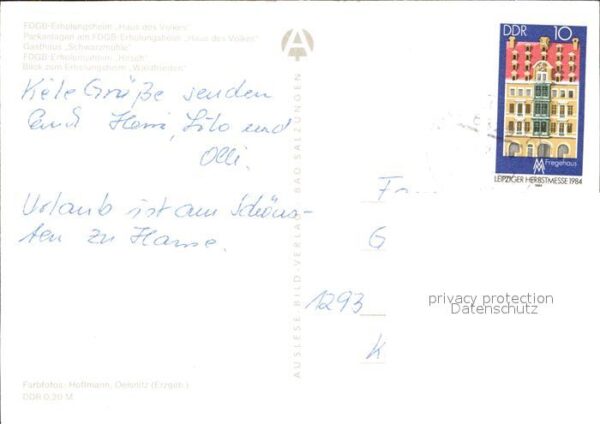 FDGB-Erholungsheim „Haus des Volkes"
Parkanlagen am FDGB-Erholungsheim „Haus des Volkes"
Gasthaus „Schwarzmühle"
FDGB-Erholungsheim „Hirsch"
Blick zum Erholungsheim „Waldfrieden"
Viele Grüße senden
Euch Hansi, Lilo und
Olli.
Urlaub ist am Schöns-
ten zu Hause.
Farbfotos: Hoffmann, Oelsnitz (Erzgeb.)
DDR 0,20 M
AUSLESE-BILD-VERLAG BAD SALZUNGEN
A
DDR 10
Fregehaus
MM
LEIPZIGER HERBSTMESSE 1984
1984
F
G
1293
K
privacy protection
Datenschutz